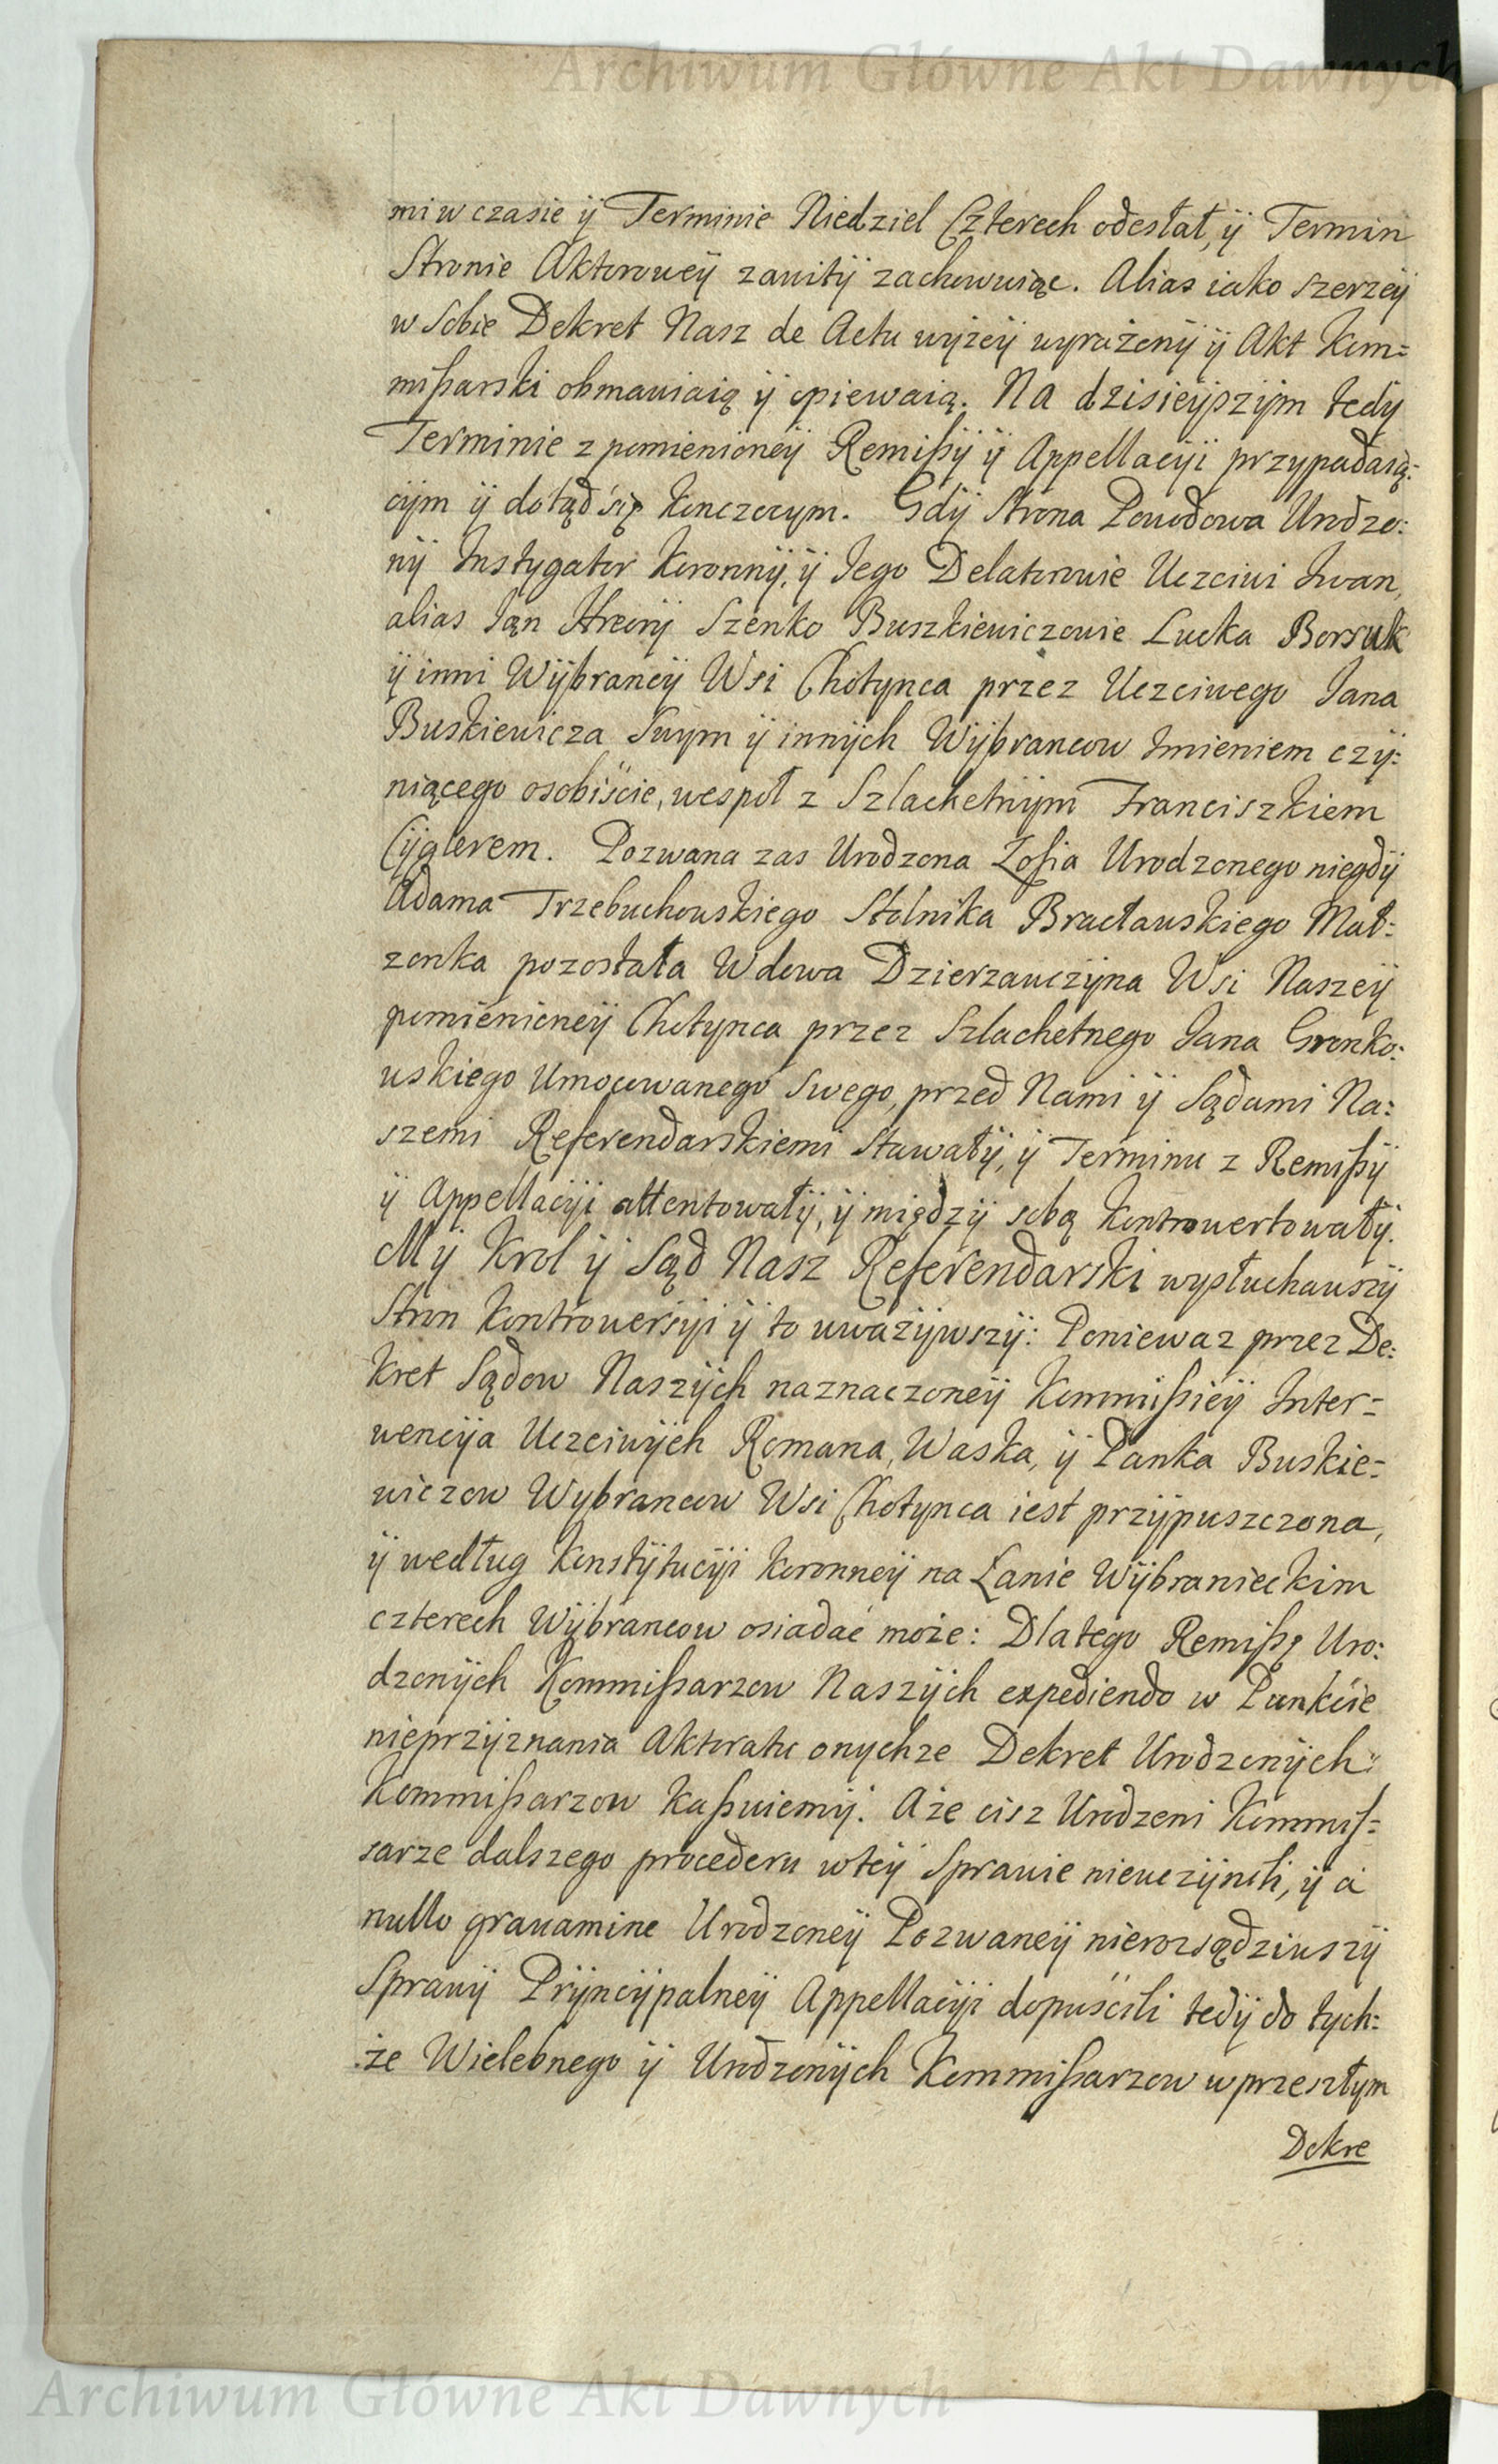 Archiwum Główne Akt Dawnych
mi w czasie ÿ Terminie Niedziel Czterech odesłał, ÿ Termin
Stronie Aktorowej zawitÿ zachowuiąc. Alias iako szerzeÿ
w Sobie Dekret Nasz de Actu wÿżeÿ wyrażonÿ ÿ Akt Kom=
mißarski obmawiaią ÿ opiewaią. Na dzisieÿszÿm tedy
Terminie z pomienioneÿ Remißÿ ÿ Appellacÿi przypadaią=
cÿm ÿ dotąd się konczocym. Gdÿ Strona Powodowa Urodzo=
nÿ Instygator Koronnÿ, ÿ Jego Delatorowie Uczciwi Iwan,
alias Jan Hreorÿ Szenko Buszkiewiczowie Lucka Borsuk
ÿ inni Wÿbrancÿ Wsi Chotynca przez Uczciwego Jana
Buskiewicza Swym ÿ innÿch Wÿbrancow Imieniem czÿ=
niącego osobiście, wespoł z Szlachetnÿm Franciszkiem
Cÿglerem. Pozwana zas Urodzona Zofia Urodzonego niegdÿ
Adama Trzebuchowskiego Stolnika Bracławskiego Mał=
zonka pozostała Wdowa Dzierzawczÿna Wsi Naszeÿ
pomienioneÿ Chotynca przez Szlachetnego Jana Gronko=
wskiego Umocowanego Swego, przed Nami ÿ Sądami Na=
szemi Referendarskiemi Stawałÿ, ÿ Terminu z Remißÿ
ÿ Appellacÿi attentowałÿ, ÿ międzÿ sobą kontrowertowałÿ.
Mÿ Krol ÿ Sąd Nasz Referendarski wysłuchawszÿ
Stron kontrowersÿi ÿ to uwazÿwszÿ: Poniewaz przez De=
kret Sądow Naszÿch naznaczoneÿ Kommißieÿ Inter=
wencÿa Uczciwÿch Romana, Waska, ÿ Panka Buskie=
wiczow Wybrancow Wsi Chotynca iest przÿpuszczona,
ÿ według Konstÿtucÿi Koronneÿ na Łanie Wÿbranieckim
czterech Wÿbrancow osiadać może: Dlatego Remißę Uro=
dzonÿch Kommißarzow Naszÿch expediendo w Punkcie
nieprzÿznania Aktoratu onychze Dekret Urodzonÿch
Kommißarzow kaßuiemÿ. A że cisz Urodzeni Kommis=
sarze dalszego procederu w teÿ Sprawie nieuczÿnili, ÿ a
nullo gravamine Urodzoneÿ Pozwaneÿ nierozsądziwszÿ
Sprawÿ Prÿncÿpalneÿ Appellacÿi dopuścili tedÿ do tych=
że Wielebnego ÿ Urodzonÿch Kommißarzow w przeszłym
Dekre
Archiwum Główne Akt Dawnych